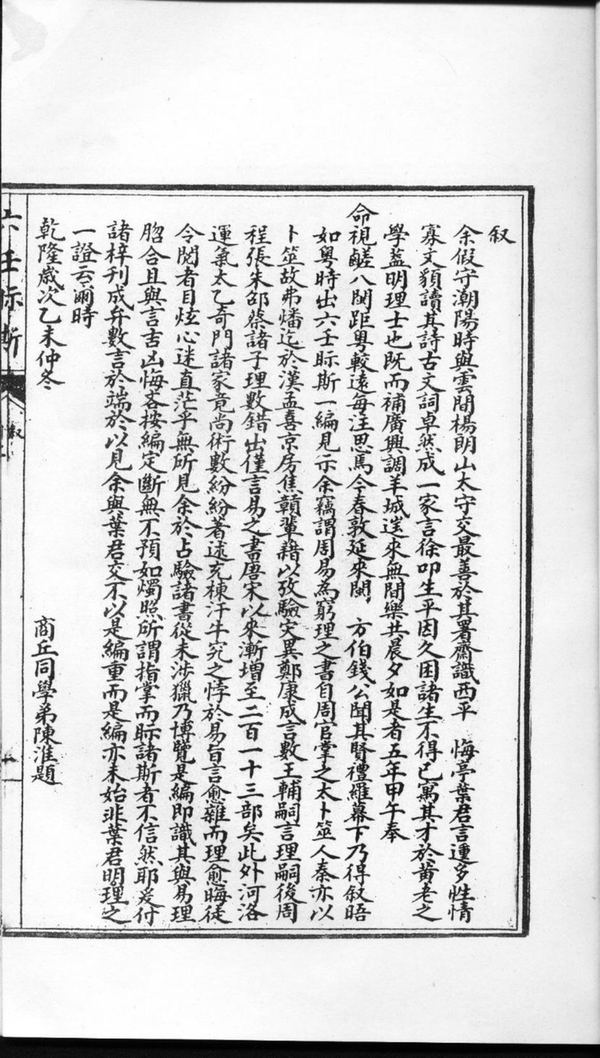 叙
余假守潮陽時與雲間楊朗山太守交最善於其署齋識西平 悔亭葉君言運多性情
寡文頟讀其詩古文詞卓然成一家言徐叩生平因久困諸生不得已寓其才於黄老之
學蓋明理士也既而補廣興調羊城送來無間樂共晨夕如是者五年甲午奉
命視鹺八閩距粵較遠每注思焉今春敦延來閩 方伯錢公聞其賢禮羅幕下乃得叙晤
如粵時出六壬眎斯一編見示余竊謂周易為窮理之書自周官掌之太卜筮人秦亦以
卜筮故弗燔迄於漢孟喜京房焦贛輩藉以攷驗災異鄭康成言數王輔嗣言理嗣後周
程張朱邵蔡諸子理數錯出僅言易之書唐宋以來漸增至二百一十三部矣此外河洛
運氣太乙奇門諸家竟尚術數紛紛著述充棟汗牛究之悖於易旨言愈雜而理愈晦徒
令閱者目炫心迷直茫乎無所見余於占驗諸書從未涉獵乃博覽是編即識其與易理
脗合且與言吉凶悔吝按編定斷無不預如燭照所謂指掌而眎諸斯者不信然耶爰付
諸梓刊成弁數言於端於以見余與葉君交不以是編重而是編亦未始非葉君明理之
一證云爾時
乾隆歲次乙未仲冬
商丘同學弟陳淮題
六壬眎斯
叙